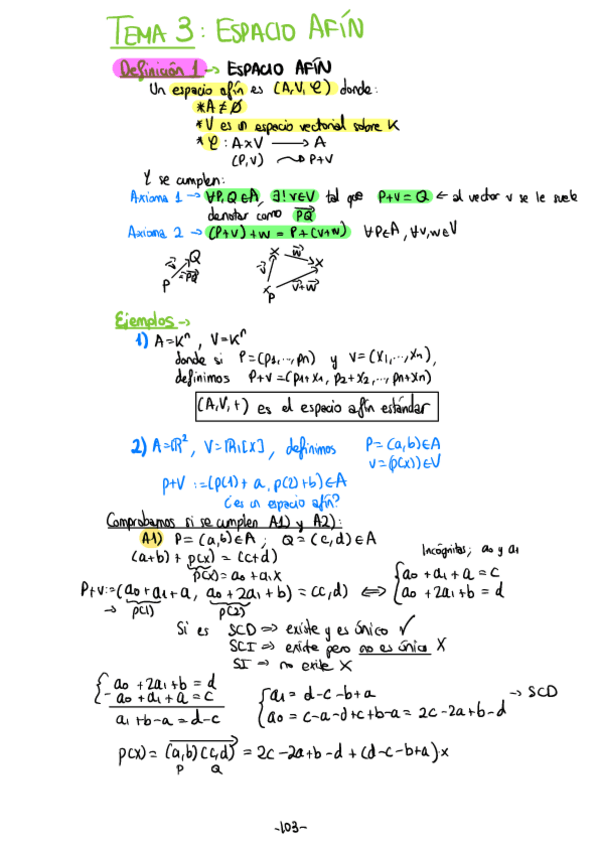 TEMA 3: ESPACIO AFÍN
Definición 1 → ESPACIO AFÍN
Un espacio afín es (A,V,φ) donde:
*A≠∅
*V es un espacio vectorial sobre K
*φ: A×V → A
(P,V) ⤳ P+V
Y se cumplen:
Axioma 1 → ∀P,Q∈A, ∃!v∈V tal que P+v=Q ← al vector v se le suele
denotar como PQ
Axioma 2 → (P+v)+w = P+(v+w) ∀P∈A, ∀v,w∈V
v Q =PQ P
x w x v v+w x P
Ejemplos →
1) A=Kⁿ, V=Kⁿ
donde si P=(p1,...,pn) y v=(x1,...,xn),
definimos P+v=(p1+x1, p2+x2,..., pn+xn)
(A,V,+) es el espacio afín estándar
2) A=ℝ², V=ℝ1[x], definimos P=(a,b)∈A
v=(p(x))∈V
p+v :=(p(1)+a, p(2)+b)∈A
¿es un espacio afín?
Comprobamos si se cumplen A1) y A2):
A1) P=(a,b)∈A; Q=(c,d)∈A
(a,b) + p(x) = (c,d)
p(x)=a0+a1x
Incógnitas: a0 y a1
P+v:=(a0+a1+a, a0+2a1+b) = (c,d) ⟺ {a0+a1+a=c
a0+2a1+b=d
→ p(1) p(2)
Si es SCD ⇒ existe y es único ✓
SCI ⇒ existe pero no es único X
SI ⇒ no existe X
{a0+2a1+b=d
-a0+a1+a=c
a1+b-a=d-c
{a1=d-c-b+a → SCD
a0=c-a-d+c+b-a=2c-2a+b-d
p(x)=(a,b)(c,d) = 2c-2a+b-d+(d-c-b+a)·x
P Q
-103-